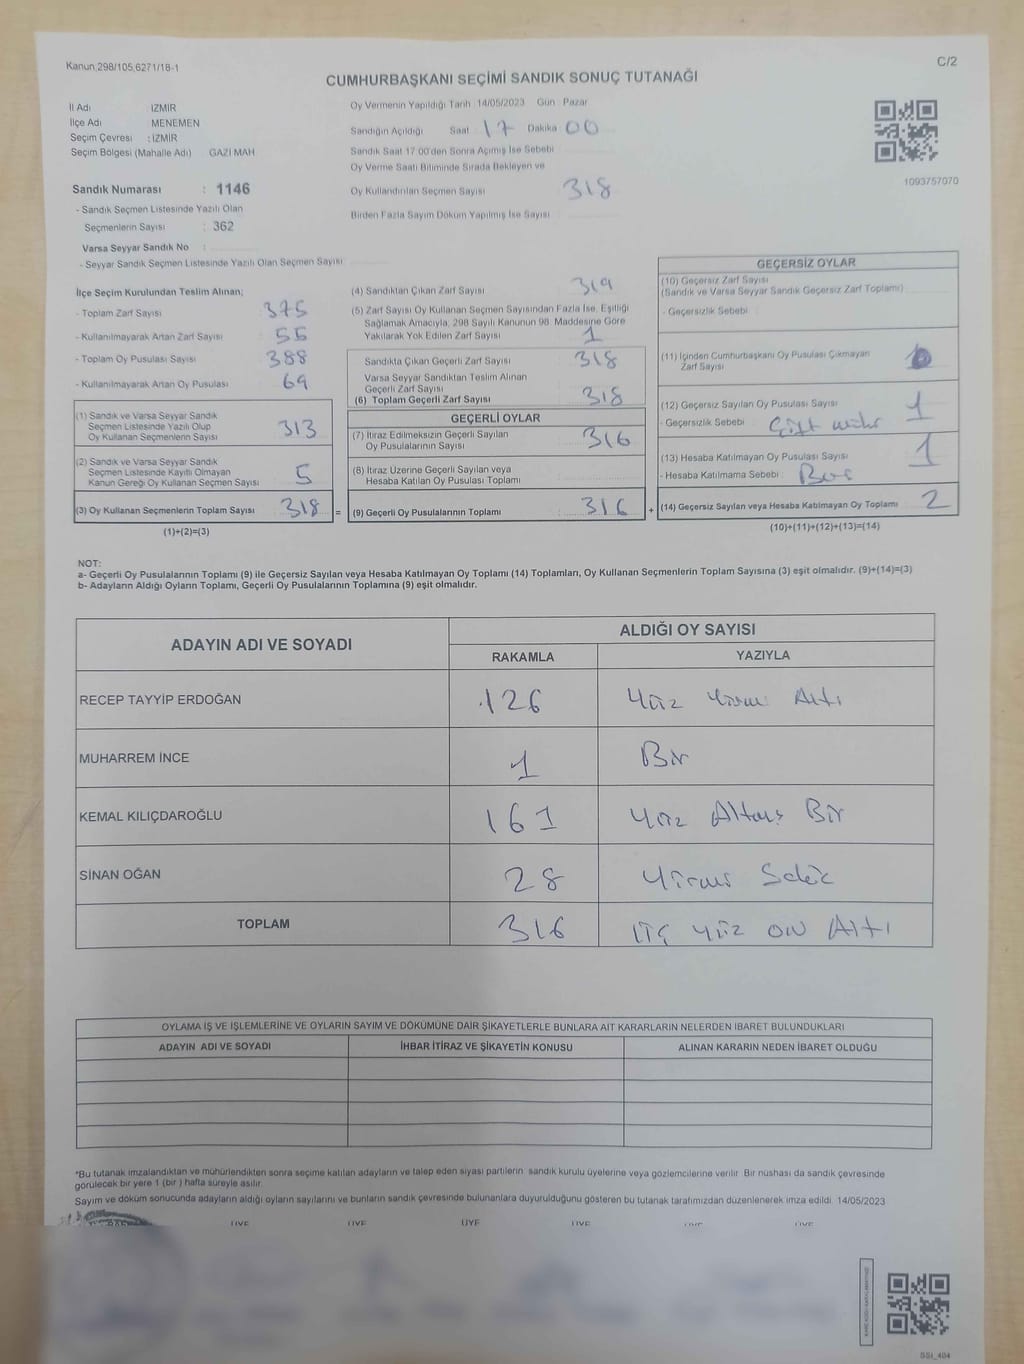 Kanun:298/105,6271/18-1
C/2
CUMHURBAŞKANI SEÇİMİ SANDIK SONUÇ TUTANAĞI
İl Adı İZMİR
İlçe Adı MENEMEN
Seçim Çevresi : İZMİR
Seçim Bölgesi (Mahalle Adı) GAZİ MAH
Sandık Numarası : 1146
- Sandık Seçmen Listesinde Yazılı Olan
Seçmenlerin Sayısı : 362
Varsa Seyyar Sandık No :
- Seyyar Sandık Seçmen Listesinde Yazılı Olan Seçmen Sayısı
Oy Vermenin Yapıldığı Tarih 14/05/2023 Gün Pazar
Sandığın Açıldığı Saat 17 Dakika 00
Sandık Saat 17 00'den Sonra Açılmış İse Sebebi
Oy Verme Saati Bitiminde Sırada Bekleyen ve
Oy Kullandırılan Seçmen Sayısı 318
Birden Fazla Sayım Döküm Yapılmış İse Sayısı
1093757070
İlçe Seçim Kurulundan Teslim Alınan;
- Toplam Zarf Sayısı 375
- Kullanılmayarak Artan Zarf Sayısı 55
- Toplam Oy Pusulası Sayısı 388
- Kullanılmayarak Artan Oy Pusulası 69
(1) Sandık ve Varsa Seyyar Sandık
Seçmen Listesinde Yazılı Olup
Oy Kullanan Seçmenlerin Sayısı 313
(2) Sandık ve Varsa Seyyar Sandık
Seçmen Listesinde Kayıtlı Olmayan
Kanun Gereği Oy Kullanan Seçmen Sayısı 5
(3) Oy Kullanan Seçmenlerin Toplam Sayısı 318 =
(1)+(2)=(3)
(4) Sandıktan Çıkan Zarf Sayısı 319
(5) Zarf Sayısı Oy Kullanan Seçmen Sayısından Fazla İse, Eşitliği
Sağlamak Amacıyla, 298 Sayılı Kanunun 98. Maddesine Göre
Yakılarak Yok Edilen Zarf Sayısı 1
Sandıkta Çıkan Geçerli Zarf Sayısı 318
Varsa Seyyar Sandıktan Teslim Alınan
Geçerli Zarf Sayısı
(6) Toplam Geçerli Zarf Sayısı 318
GEÇERLİ OYLAR
(7) İtiraz Edilmeksizin Geçerli Sayılan
Oy Pusulalarının Sayısı 316
(8) İtiraz Üzerine Geçerli Sayılan veya
Hesaba Katılan Oy Pusulası Toplamı
(9) Geçerli Oy Pusulalarının Toplamı 316 +
GEÇERSİZ OYLAR
(10) Geçersiz Zarf Sayısı
(Sandık ve Varsa Seyyar Sandık Geçersiz Zarf Toplamı)
- Geçersizlik Sebebi
(11) İçinden Cumhurbaşkanı Oy Pusulası Çıkmayan
Zarf Sayısı
(12) Geçersiz Sayılan Oy Pusulası Sayısı 1
- Geçersizlik Sebebi Çift mühr
(13) Hesaba Katılmayan Oy Pusulası Sayısı 1
- Hesaba Katılmama Sebebi Boş
(14) Geçersiz Sayılan veya Hesaba Katılmayan Oy Toplamı 2
(10)+(11)+(12)+(13)=(14)
NOT:
a- Geçerli Oy Pusulalarının Toplamı (9) ile Geçersiz Sayılan veya Hesaba Katılmayan Oy Toplamı (14) Toplamları, Oy Kullanan Seçmenlerin Toplam Sayısına (3) eşit olmalıdır. (9)+(14)=(3)
b- Adayların Aldığı Oyların Toplamı, Geçerli Oy Pusulalarının Toplamına (9) eşit olmalıdır.
ADAYIN ADI VE SOYADI
ALDIĞI OY SAYISI
RAKAMLA YAZIYLA
RECEP TAYYİP ERDOĞAN 126 Yüz Yirmi Altı
MUHARREM İNCE 1 Bir
KEMAL KILIÇDAROĞLU 161 Yüz Altmış Bir
SİNAN OĞAN 28 Yirmi Sekiz
TOPLAM 316 Üç Yüz ON Altı
OYLAMA İŞ VE İŞLEMLERİNE VE OYLARIN SAYIM VE DÖKÜMÜNE DAİR ŞİKAYETLERLE BUNLARA AİT KARARLARIN NELERDEN İBARET BULUNDUKLARI
ADAYIN ADI VE SOYADI İHBAR İTİRAZ VE ŞİKAYETİN KONUSU ALINAN KARARIN NEDEN İBARET OLDUĞU
*Bu tutanak imzalandıktan ve mühürlendikten sonra seçime katılan adayların ve talep eden siyasi partilerin sandık kurulu üyelerine veya gözlemcilerine verilir. Bir nüshası da sandık çevresinde
görülecek bir yere 1 (bir) hafta süreyle asılır.
Sayım ve döküm sonucunda adayların aldığı oyların sayılarını ve bunların sandık çevresinde bulunanlara duyurulduğunu gösteren bu tutanak tarafımızdan düzenlenerek imza edildi. 14/05/2023
ÜYE ÜYE ÜYE ÜYE ÜYE ÜYE
SSİ_404